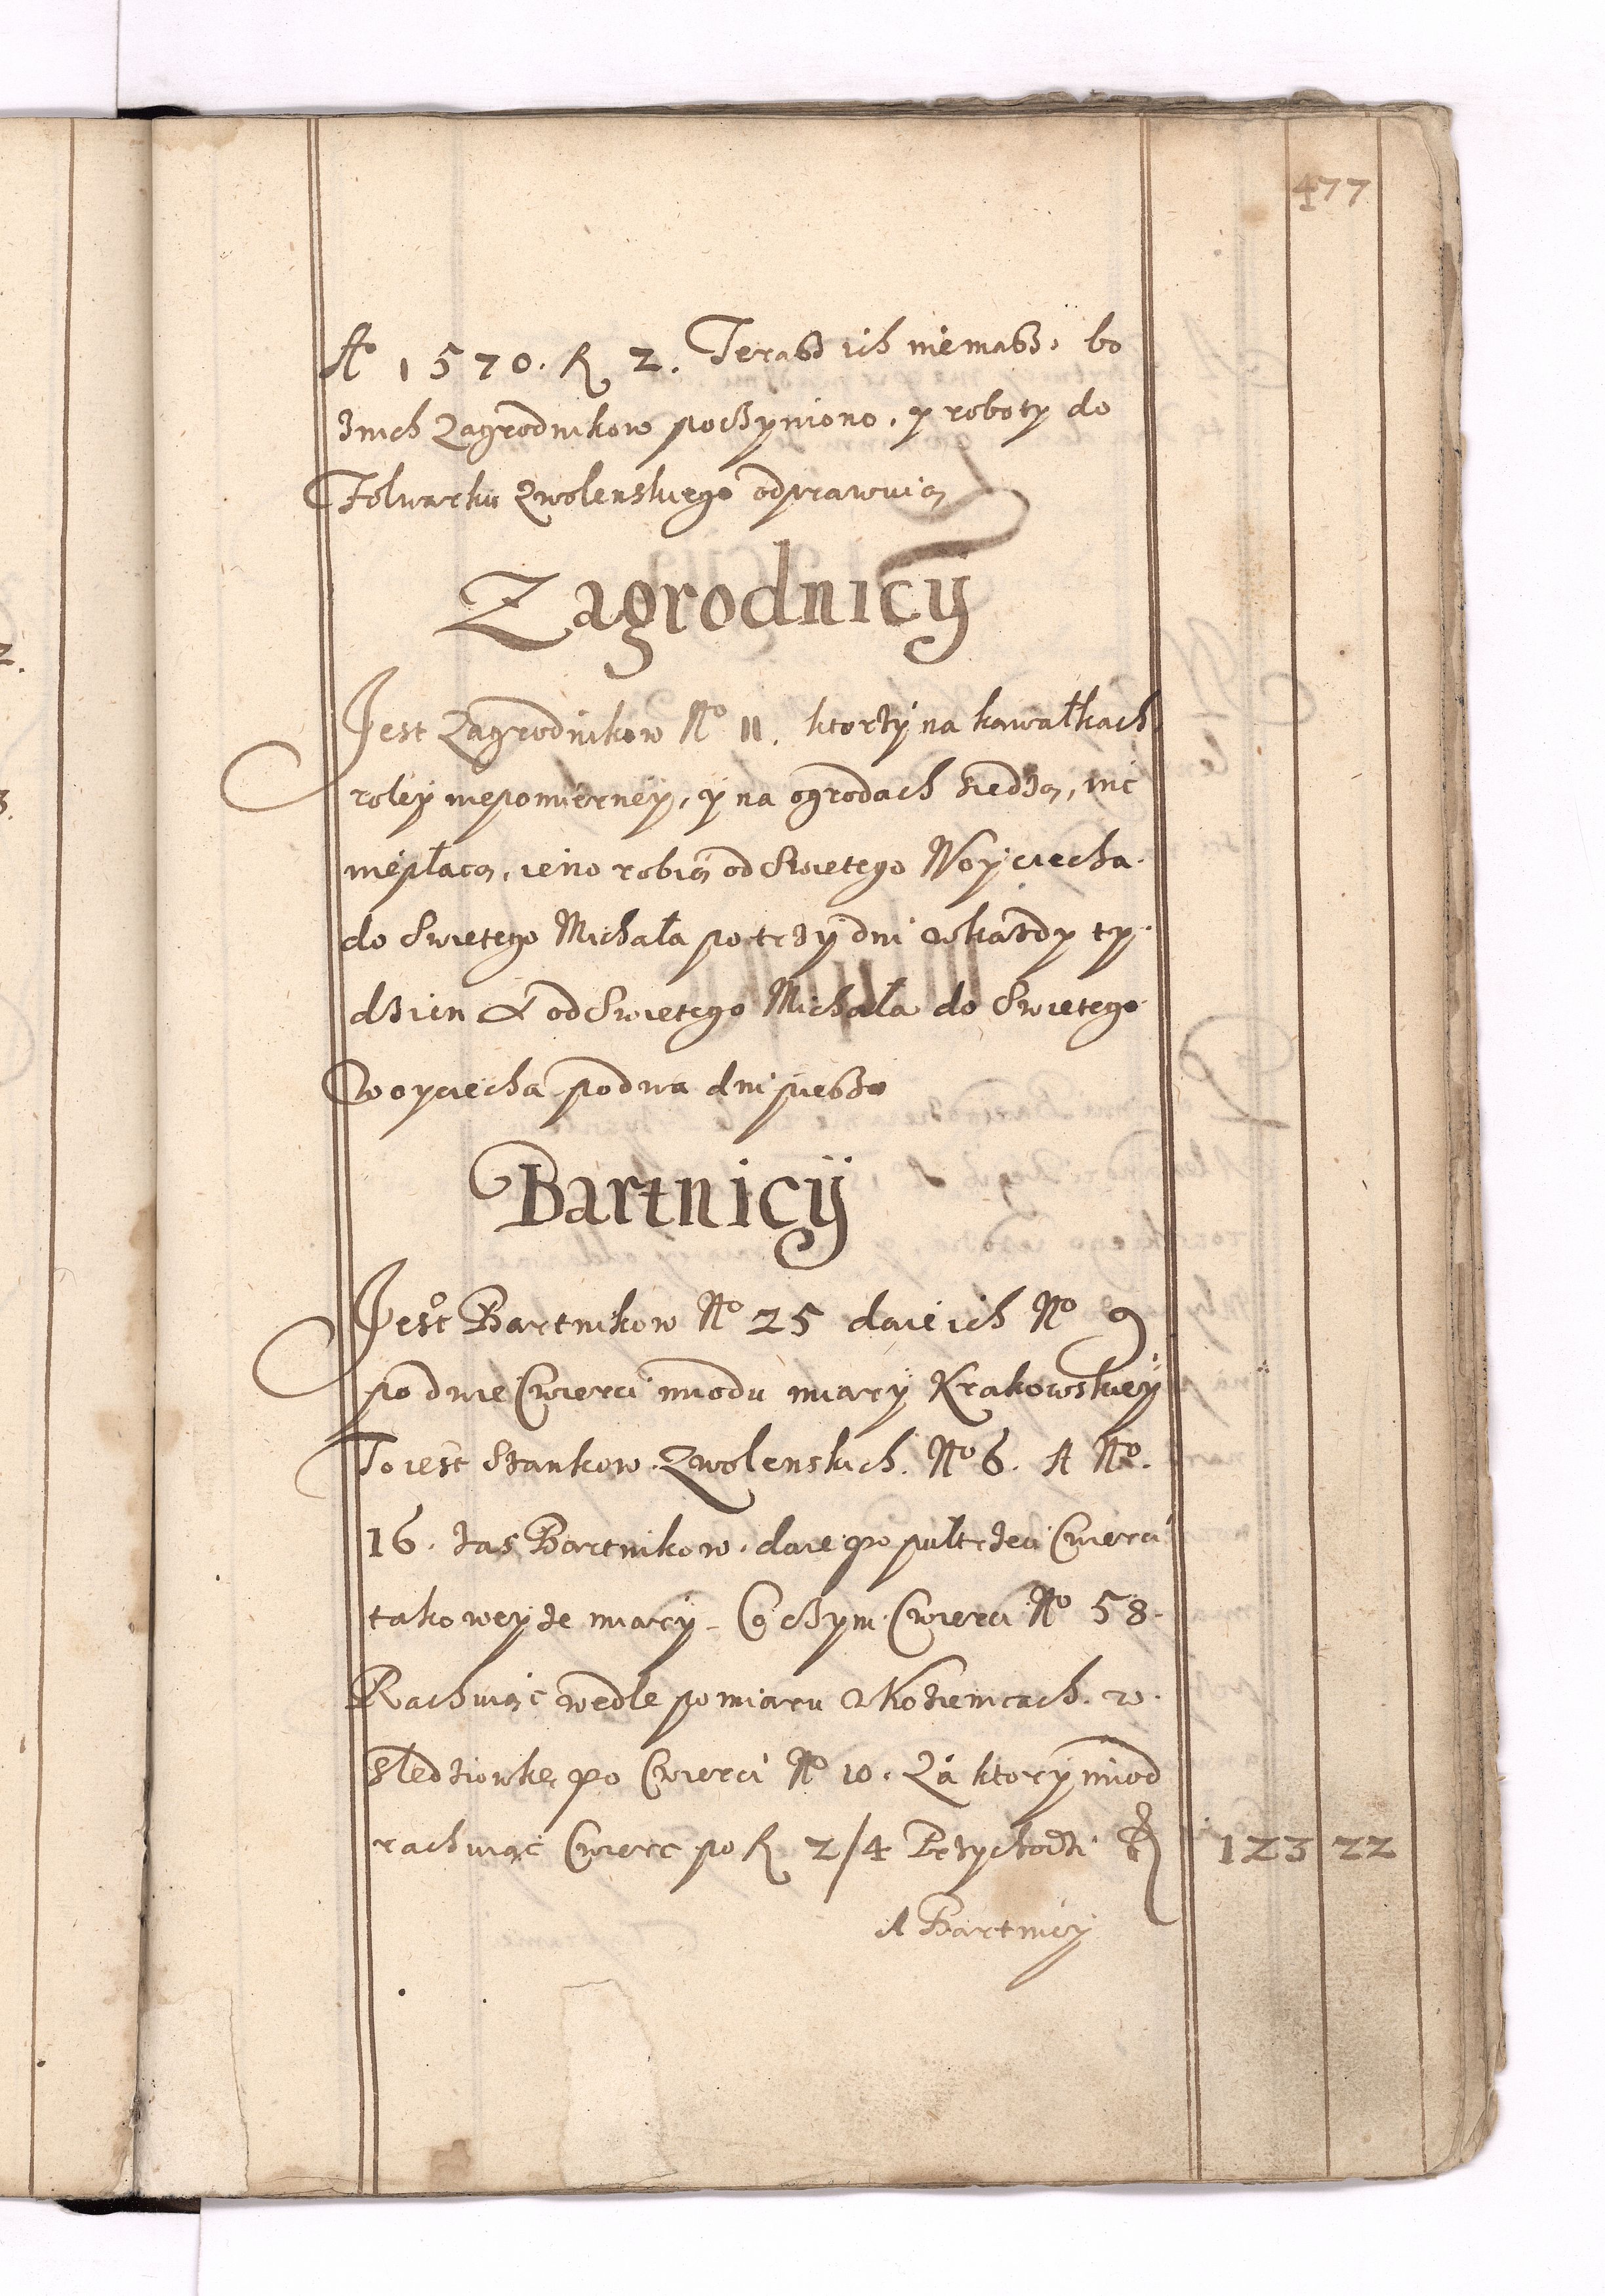 477
Aº 1570. R 2. Terasz ich niemasz. bo
znich Zagrodnikow poczyniono, y roboty do
Folwarku Zwolenskiego odprawuią
Zagrodnicÿ
Jest Zagrodnikow Nº 11. ktorzÿ na kawałkach
roleÿ niepomierneÿ, ÿ na ogrodach siedzą, nic
niepłacą, ieno robią od Swietego Woÿciecha
do Swietego Michała po trzÿ dni wkazdy ty
dzien A od Swietego Michała do Swietego
Woyciecha po dwa dni pieszo
Bartnicÿ
Jest Bartnikow Nº 25 daie ich Nº 9
po dwie Cwierci miodu miarÿ Krakowskieÿ
To iest Stankow Zwolenskich. Nº 6. A Nº.
16. zas Bartnikow. daie po pułtrzeci Cwierci
takoweÿze miarÿ. Cº czym Cwierci Nº 58.
Rachuiąc wedle pomiaru wKozienicach. w.
Sledziowkę po Cwierci Nº 10. Zá ktorÿ miod
rachuiąc Cwierc po R 2/4 Przychodzi R 123 22
A Bartnicÿ